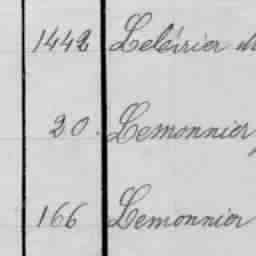 1442 Lelérier
20. Lemonnier
166 Lemonnier